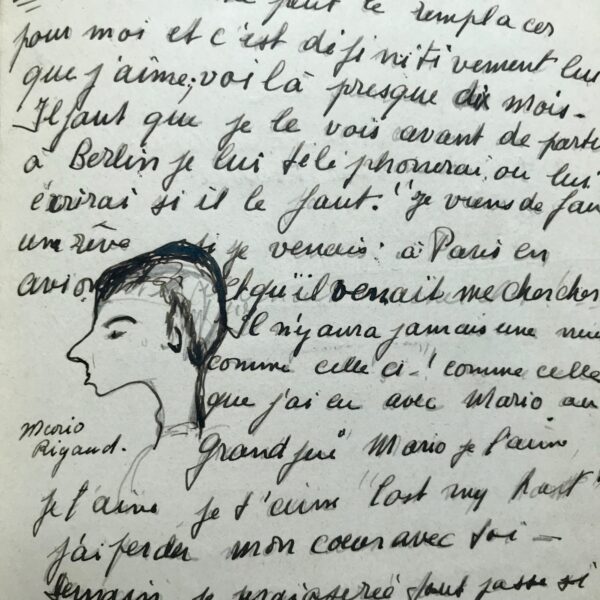 peut le remplacer
pour moi et c'est difinitivement lui
que j'aime, voilà presque dix mois-
Il faut que je le vois avant de partir
à Berlin je lui téléphonerai ou lui
écrirai si il le faut. "Je viens de fair
un rêve si je venais: à Paris en
avion et qu'il venait me chercher
Il n'y aura jamais une nui
comme celle ci-! comme celle
que j'ai eu avec Mario au
Mario
Rigaud.
Grand jeu" Mario je l'aime
je l'aime je t'aime "lost my heart"
j'ai perdu mon coeur avec toi -
demain je tout passe si